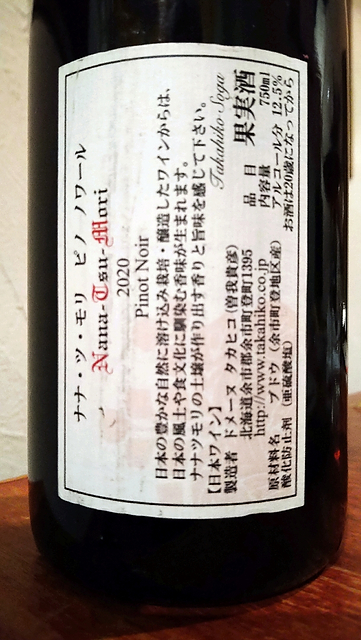 ナナ・ツ・モリ ピノ ノワール
Nana-Tsu-Mori
2020
Pinot Noir
日本の豊かな自然に溶け込み栽培・醸造したワインからは、
日本の風土や食文化に馴染む香味が生まれます。
ナナツモリの土壌が作り出す香りと旨味を感じて下さい。
Takahiko Soga
【日本ワイン】
製造者 ドメーヌ タカヒコ(曽我貴彦)
北海道余市郡余市町登町1395
http://www.takahiko.co.jp
原材料名 ブドウ(余市町登地区産)
酸化防止剤(亜硫酸塩)
品目 果実酒
内容量 750ml
アルコール分 12.5%
お酒は20歳になってから